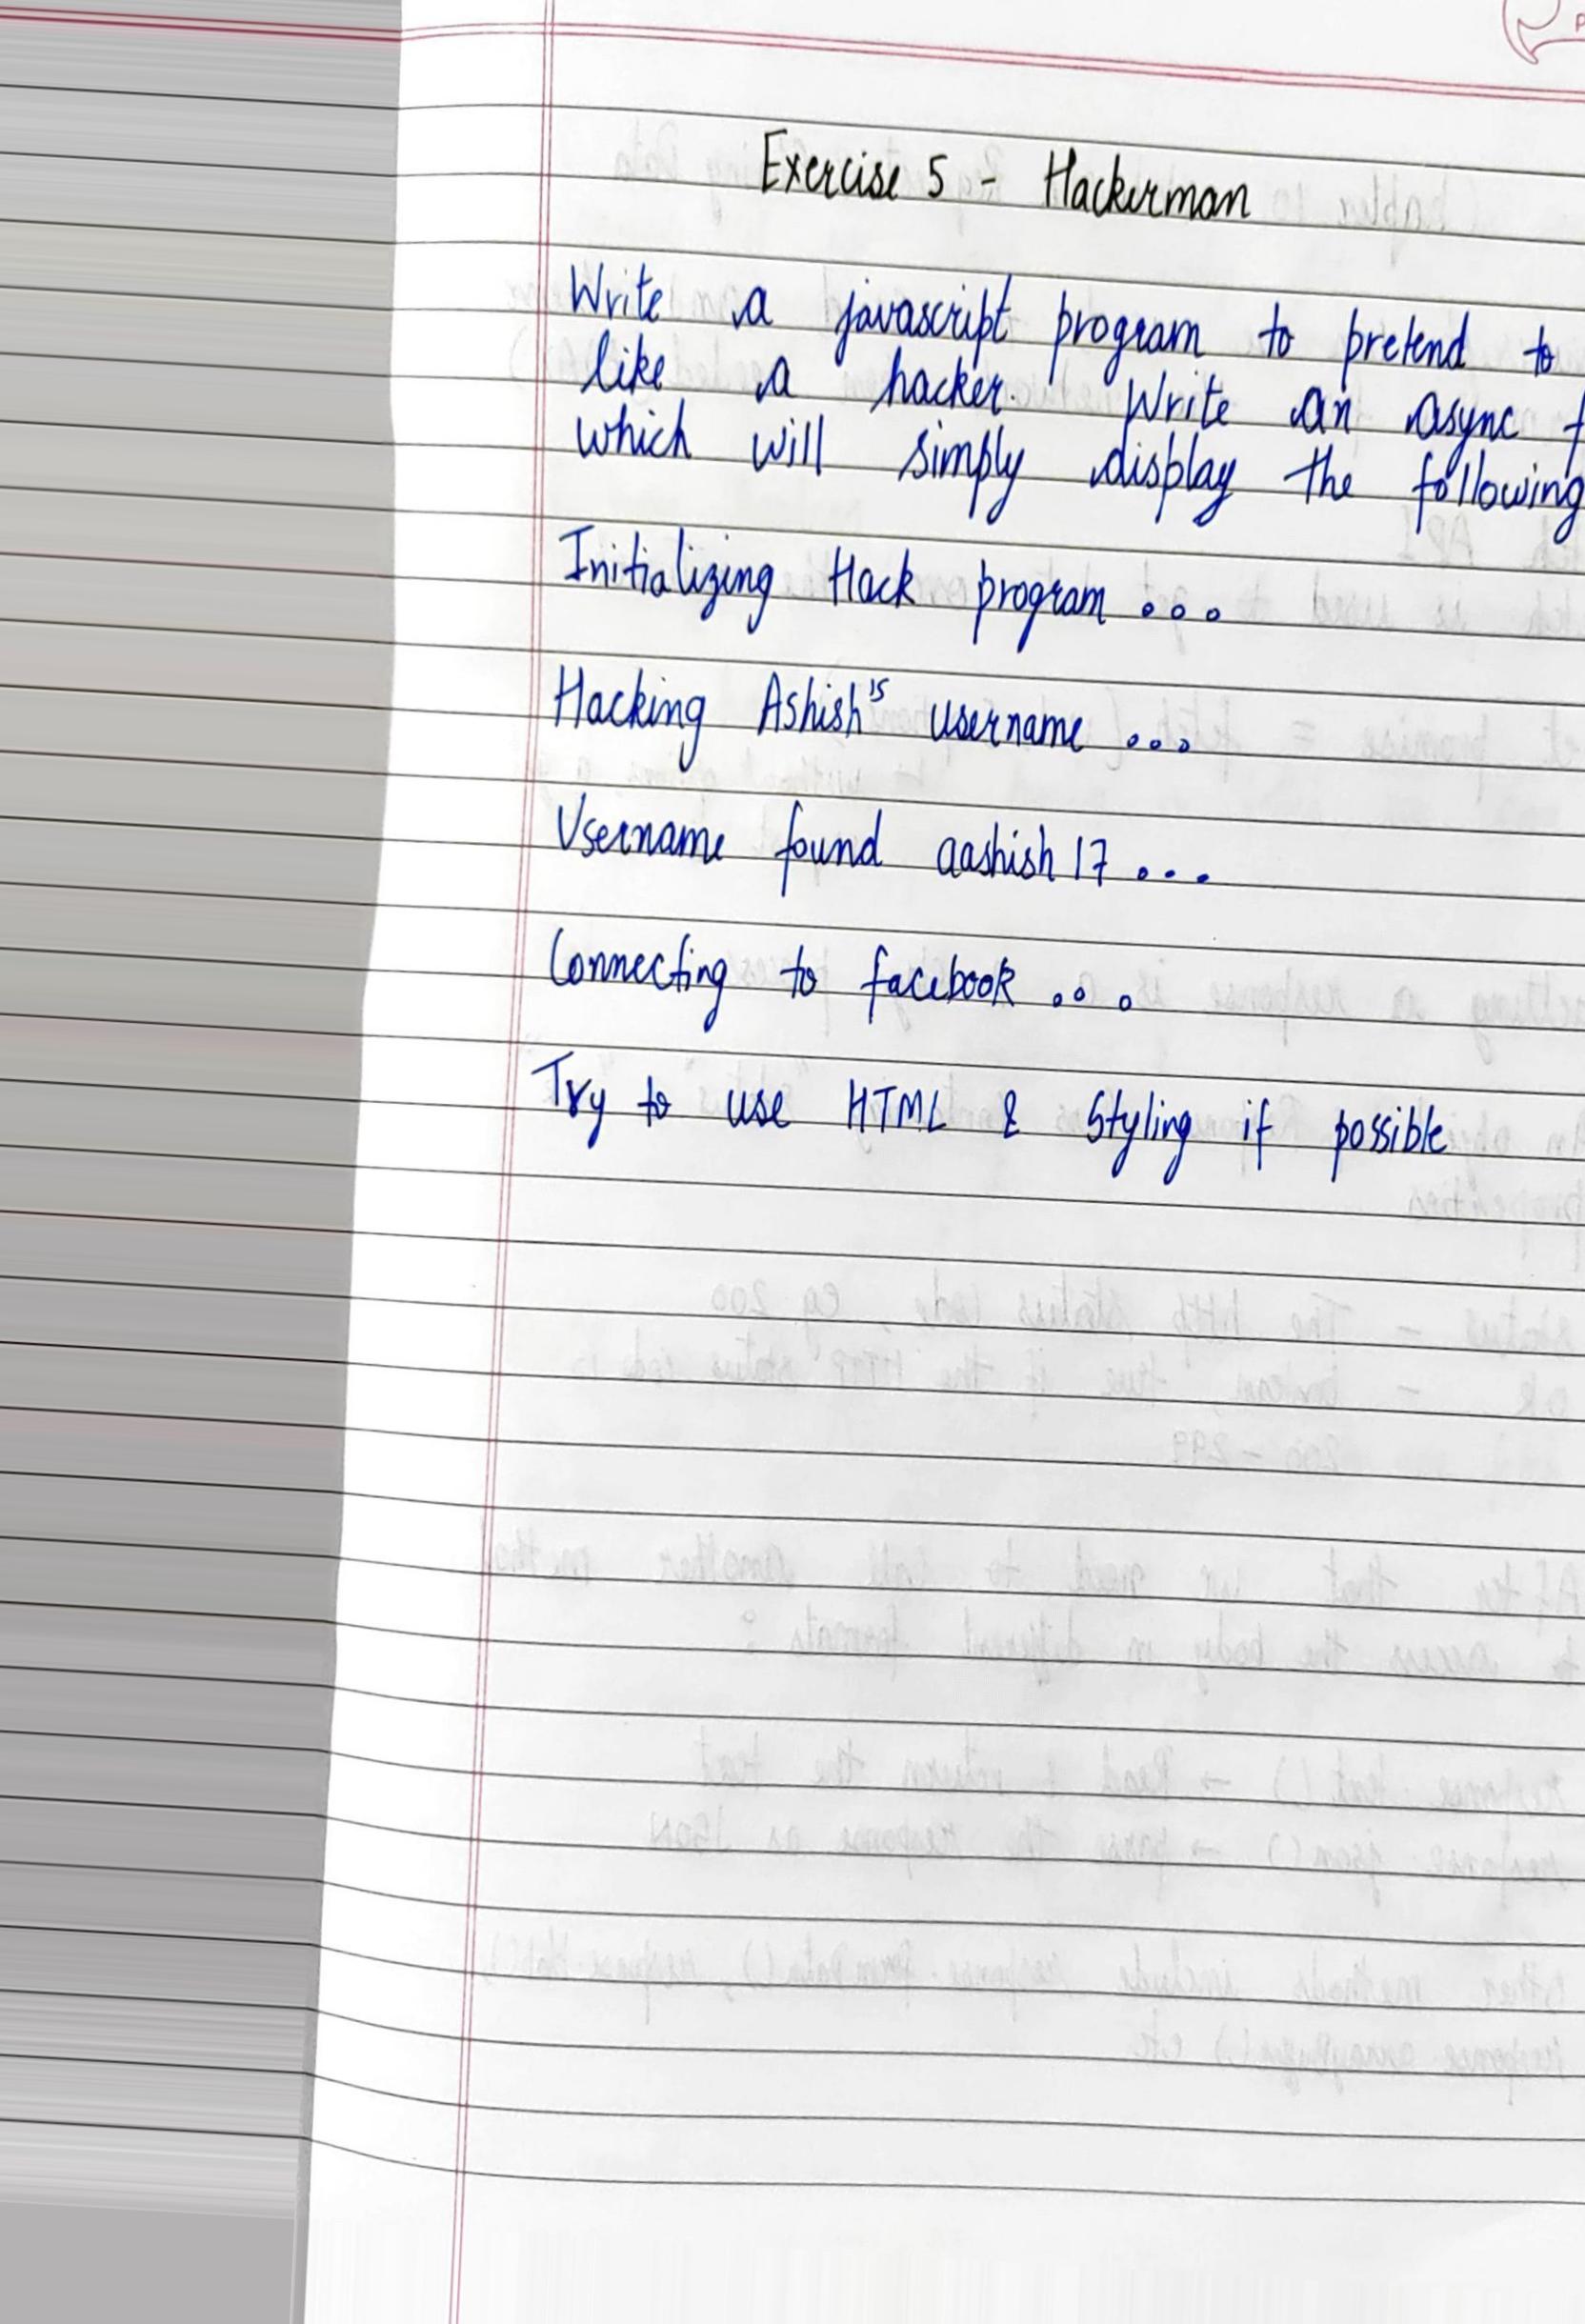 Exercise 5 - Hackerman
Write a javascript program to pretend to
like a hacker. Write an async f
which will simply display the following
Initializing Hack program ...
Hacking Ashish's username ...
Username found aashish17 ...
Connecting to facebook ...
Try to use HTML & Styling if possible